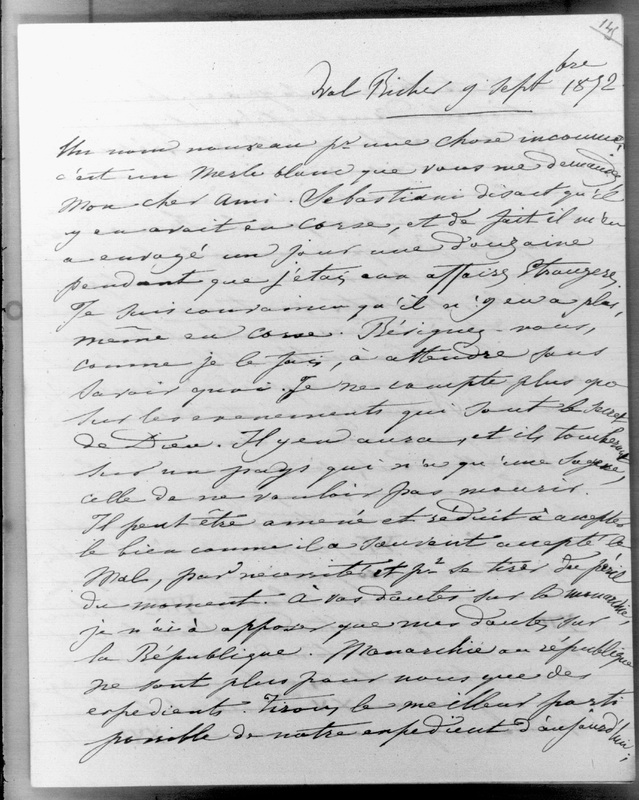 145
Val Richer 9 septbre 1872
Un nom nouveau pr une chose inconnue,
c'est un merle blanc que vous me demandez
mon cher ami. Sebastiani disait qu'il
y en avait en Corse, et de fait il m'en
a envoyé un jour une douzaine
pendant que j'étais aux affaires Etrangères.
Je suis convaincu qu'il n'y en a plus,
même en Corse. Résignez-vous,
comme je le fais, à attendre sans
savoir quoi. Je ne compte plus que
sur les evenements qui sont le secret
de Dieu. Il y en aura, et ils tomberont
sur un pays qui n'a qu'une sagesse,
celle de ne vouloir pas mourir.
Il peut être amené et réduit à accepter
le bien comme il a souvent accepté le
mal, par nécessité et pr se tirer du péril
du moment. À vos doutes sur la monarchie,
je n'ai à opposer que mes doutes sur
la République. Monarchie ou république
ne sont plus pour nous que des
expedients. Tirons le meilleur parti
possible de notre expedient d'aujourd'hui;